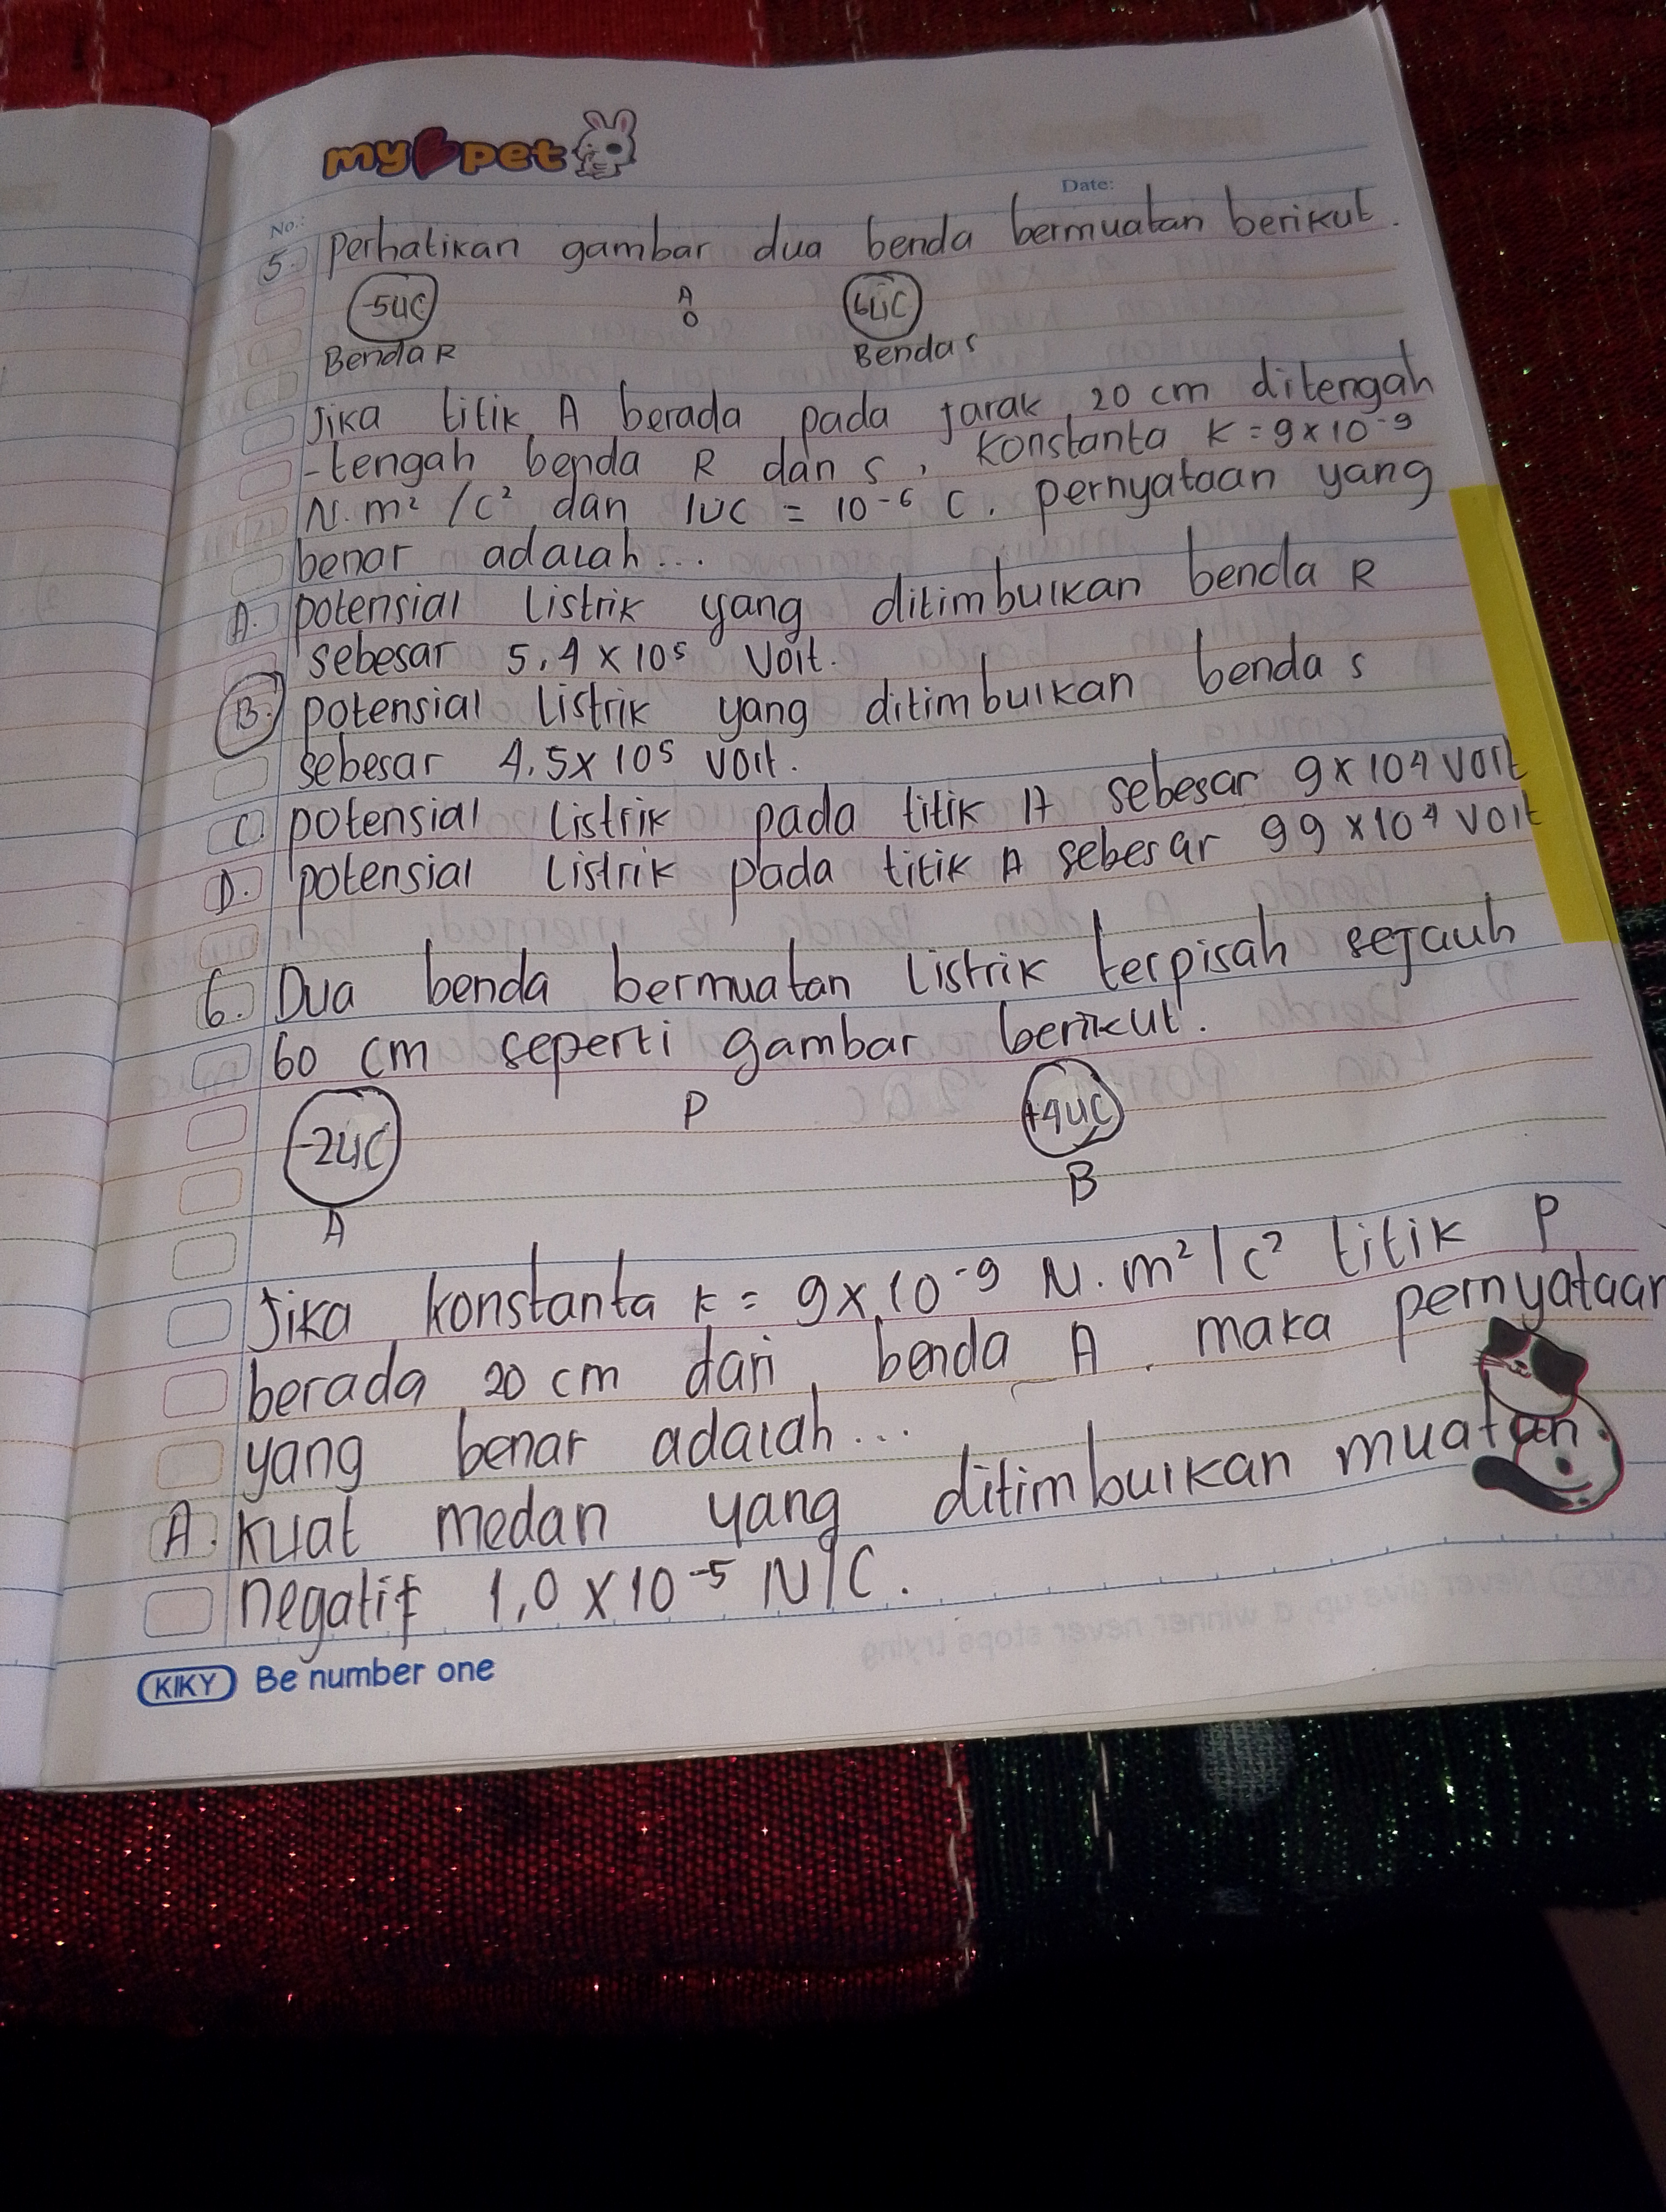 my pet
No.:
Date:
5. perhatikan gambar dua benda bermuatan berikut.
-5μC A o 6μC
Benda R Benda S
Jika titik A berada pada jarak 20 cm ditengah
-tengah benda R dan S, konstanta k = 9 x 10⁻⁹
N.m² /C² dan 1μC = 10⁻⁶ C. pernyataan yang
benar adalah...
A. potensial listrik yang ditimbulkan benda R
sebesar 5,4 x 10⁵ Volt.
B. potensial listrik yang ditimbulkan benda S
sebesar 4,5 x 10⁵ volt.
C. potensial listrik pada titik A sebesar 9 x 10⁴ volt
D. potensial listrik pada titik A sebesar 99 x 10⁴ volt
6. Dua benda bermuatan listrik terpisah sejauh
60 cm seperti gambar berikut.
-2μC P +4μC
A B
Jika konstanta k = 9 x 10⁻⁹ N.m²/C² titik P
berada 20 cm dari benda A, maka pernyataan
yang benar adalah...
A. Kuat medan yang ditimbulkan muatan
negatif 1,0 x 10⁻⁵ N/C.
KIKY Be number one